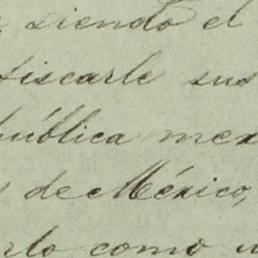 siendo el
fiscarle sus
pública mex
de México,
rlo como u